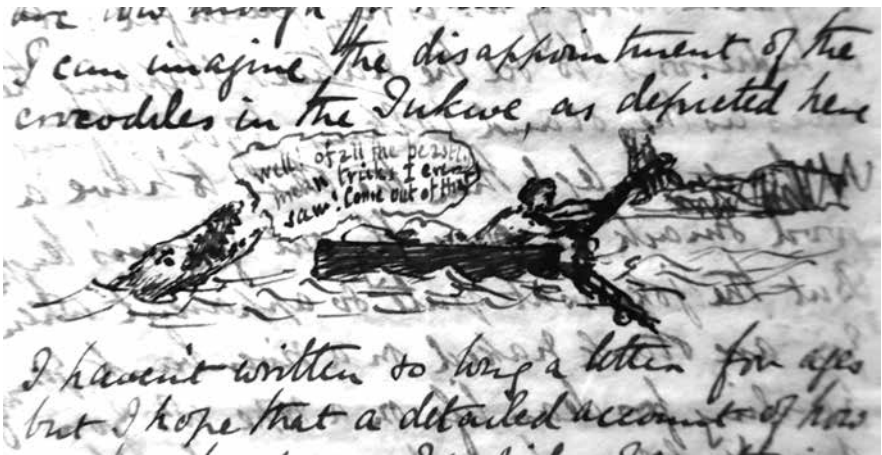 I can imagine the disappointment of the
crocodiles in the Inkwe, as depicted here
Well! of all the beastly
mean tricks I ever
saw! Come out of that
I haven't written so long a letter for ages
but I hope that a detailed account of how